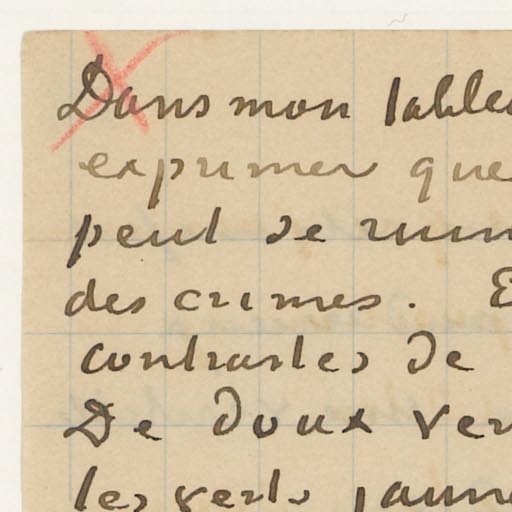 Dans mon table
exprimer que
peut se ruin
des crimes. E
contrastes de
De doux ver
les verts jaun